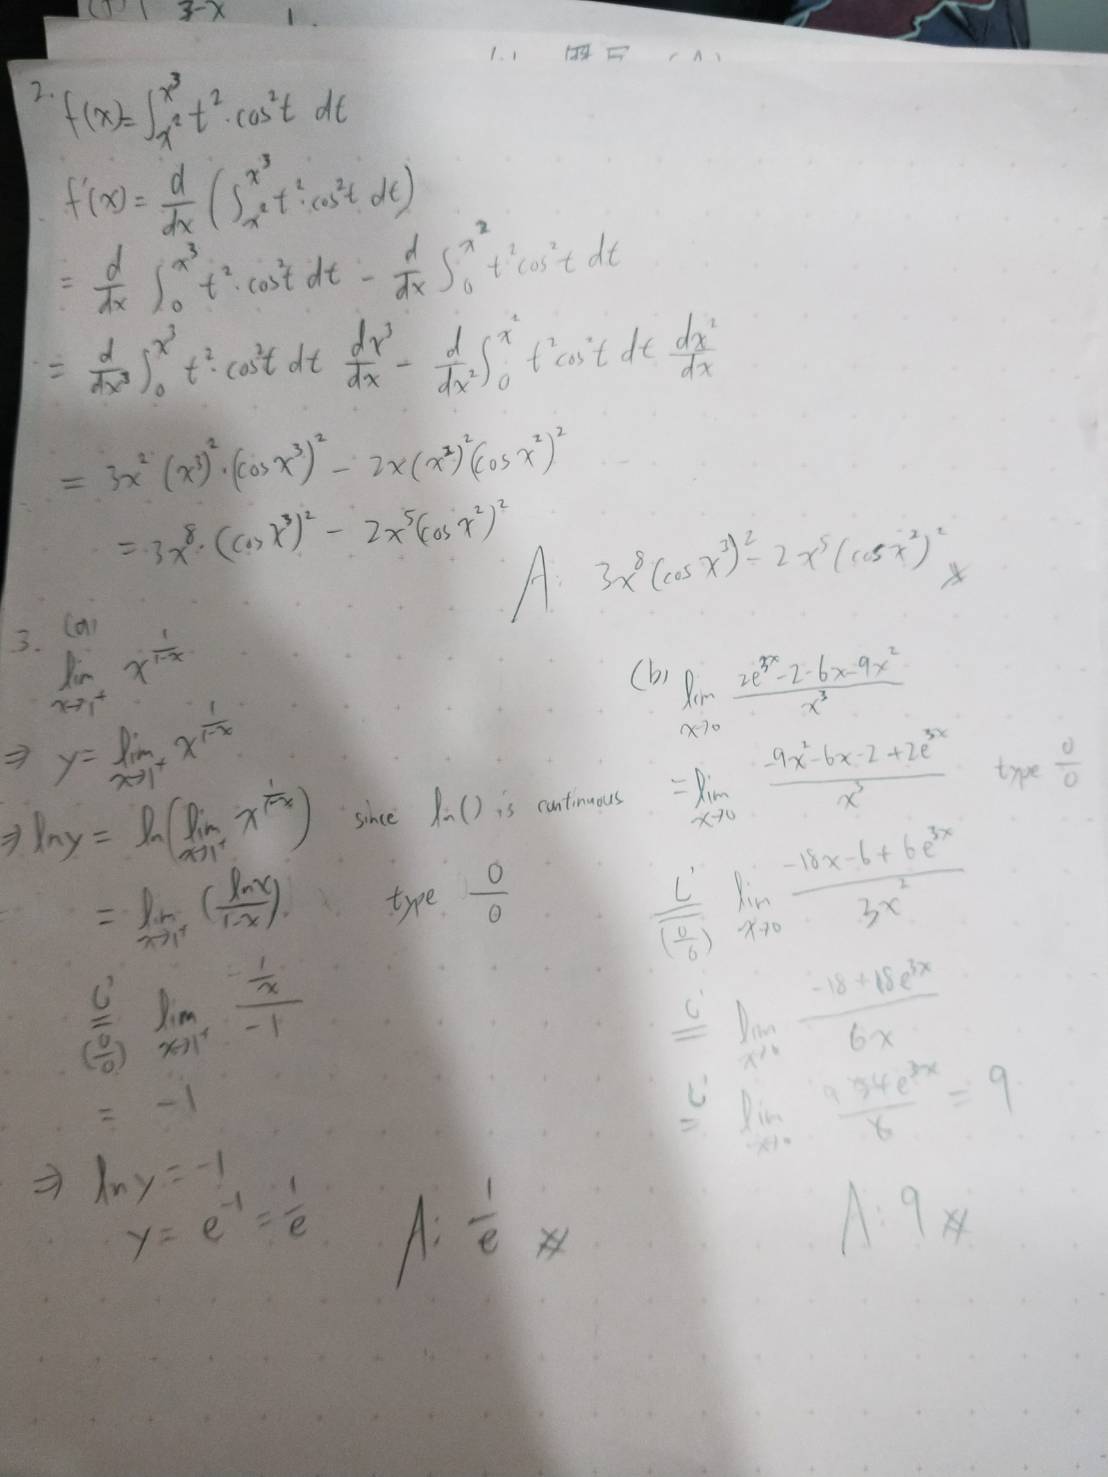 3-x
2. f(x)=∫_{x²}^{x³} t²·cos²t dt
f'(x) = d/dx (∫_{x²}^{x³} t²·cos²t dt)
= d/dx ∫_0^{x³} t²·cos²t dt - d/dx ∫_0^{x²} t²cos²t dt
= d/dx³ ∫_0^{x³} t²·cos²t dt dx³/dx - d/dx² ∫_0^{x²} t²cos²t dt dx²/dx
= 3x²(x³)²·(cosx³)² - 2x(x²)²(cosx²)²
= 3x⁸·(cosx³)² - 2x⁵(cosx²)²
A: 3x⁸(cosx³)² - 2x⁵(cosx²)²
3. (a)
lim_{x→1⁺} x^{1/(1-x)}
⇒ y = lim_{x→1⁺} x^{1/(1-x)}
⇒ lny = ln(lim_{x→1⁺} x^{1/(1-x)}) since ln() is continuous
= lim_{x→1⁺} (lnx/(1-x)) type 0/0
L'= (0/0) lim_{x→1⁺} (1/x)/(-1)
= -1
⇒ lny = -1
y = e⁻¹ = 1/e A: 1/e
(b) lim_{x→0} (2e^{3x}-2-6x-9x²)/x³
= lim_{x→0} (-9x²-6x-2+2e^{3x})/x³ type 0/0
L'= (0/0) lim_{x→0} (-18x-6+6e^{3x})/3x²
L'= lim_{x→0} (-18+18e^{3x})/6x
L'= lim_{x→0} 54e^{3x}/6 = 9
A: 9